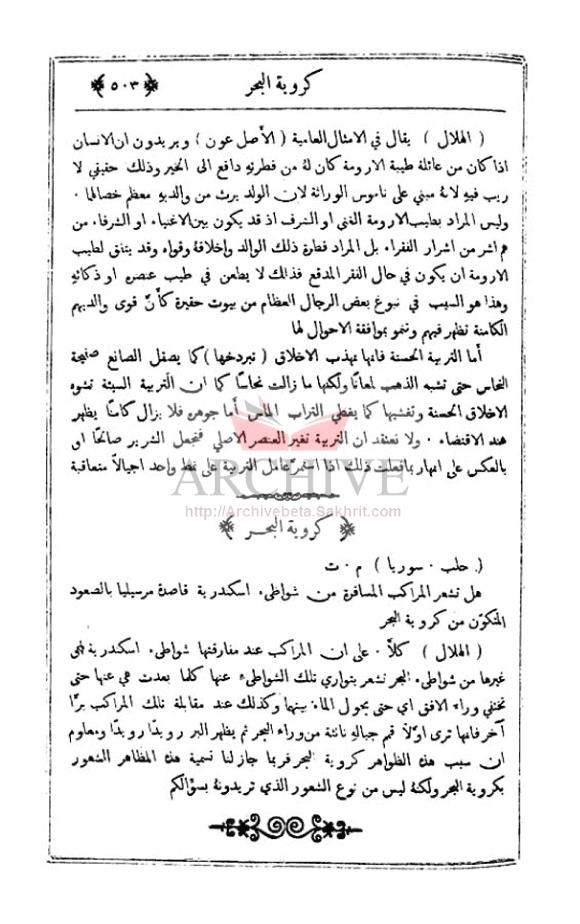 كروية البحر
﴿٥٠٣﴾
( الهلال ) يقال في الامثال العامية ( الأصل عون ) ويريدون ان الانسان
اذا كان من عائلة طيبة الارومة كان لهُ من فطرتهِ دافع الى الخير وذلك حقيقي لا
ريب فيهِ لانهُ مبني على ناموس الوراثة لان الولد يرث من والديهِ معظم خصالها ٠
وليس المراد بطيب الارومة الغنى او الشرف اذ قد يكون بين الاغنياء او الشرفاء من
هم اشر من اشرار الفقراء بل المراد فطرة ذلك الوالد واخلاقهُ وقواه وقد يتفق لطيب
الارومة ان يكون في حال الفقر المدقع فذلك لا يطعن في طيب عنصره او ذكائهِ
وهذا هو السبب في نبوغ بعض الرجال العظام من بيوت حقيرة كأنّ قوى والديهم
الكامنة تظهر فيهم وتنمو بموافقة الاحوال لها
أما التربية الحسنة فانها تهذب الاخلاق ( تبردخها ) كما يصقل الصانع صفيحة
النحاس حتى تشبه الذهب لمعانًا ولكنها ما زالت نحاسًا كما ان التربية السيئة تشوه
الاخلاق الحسنة وتغشيها كما يغطي التراب الماس أما جوهره فلا يزال كامنًا يظهر
عند الاقتضاء ٠ ولا نعتقد ان التربية تغير العنصر الاصلي فتجعل الشرير صالحًا او
بالعكس على انها ربما فعلت ذلك اذا استمرّ عامل التربية على نمط واحد اجيالًا متعاقبة
ARCHIVE
http://Archivebeta.Sakhrit.com
﴿ كروية البحر ﴾
( حلب ٠ سوريا ) م ٠ ت
هل تشعر المراكب المسافرة من شواطىء اسكندرية قاصدة مرسيليا بالصعود
المتكوّن من كروية البحر
( الهلال ) كلّا ٠ على ان المراكب عند مفارقتها شواطىء اسكندرية او
غيرها من شواطىء البحر تشعر بتواري تلك الشواطىء عنها كلما بعدت هي عنها حتى
تختفي وراء الافق اي حتى يحول الماء بينها وكذلك عند مقابلة تلك المراكب برًّا
آخر فانها ترى اولًا قمم جبالهِ ناتئة من وراء البحر ثم يظهر البر رويدًا رويدًا ومعلوم
ان سبب هذه الظواهر كروية البحر فربما جاز لنا تسمية هذه المظاهر الشعور
بكروية البحر ولكنهُ ليس من نوع الشعور الذي تريدونهُ بسؤالكم